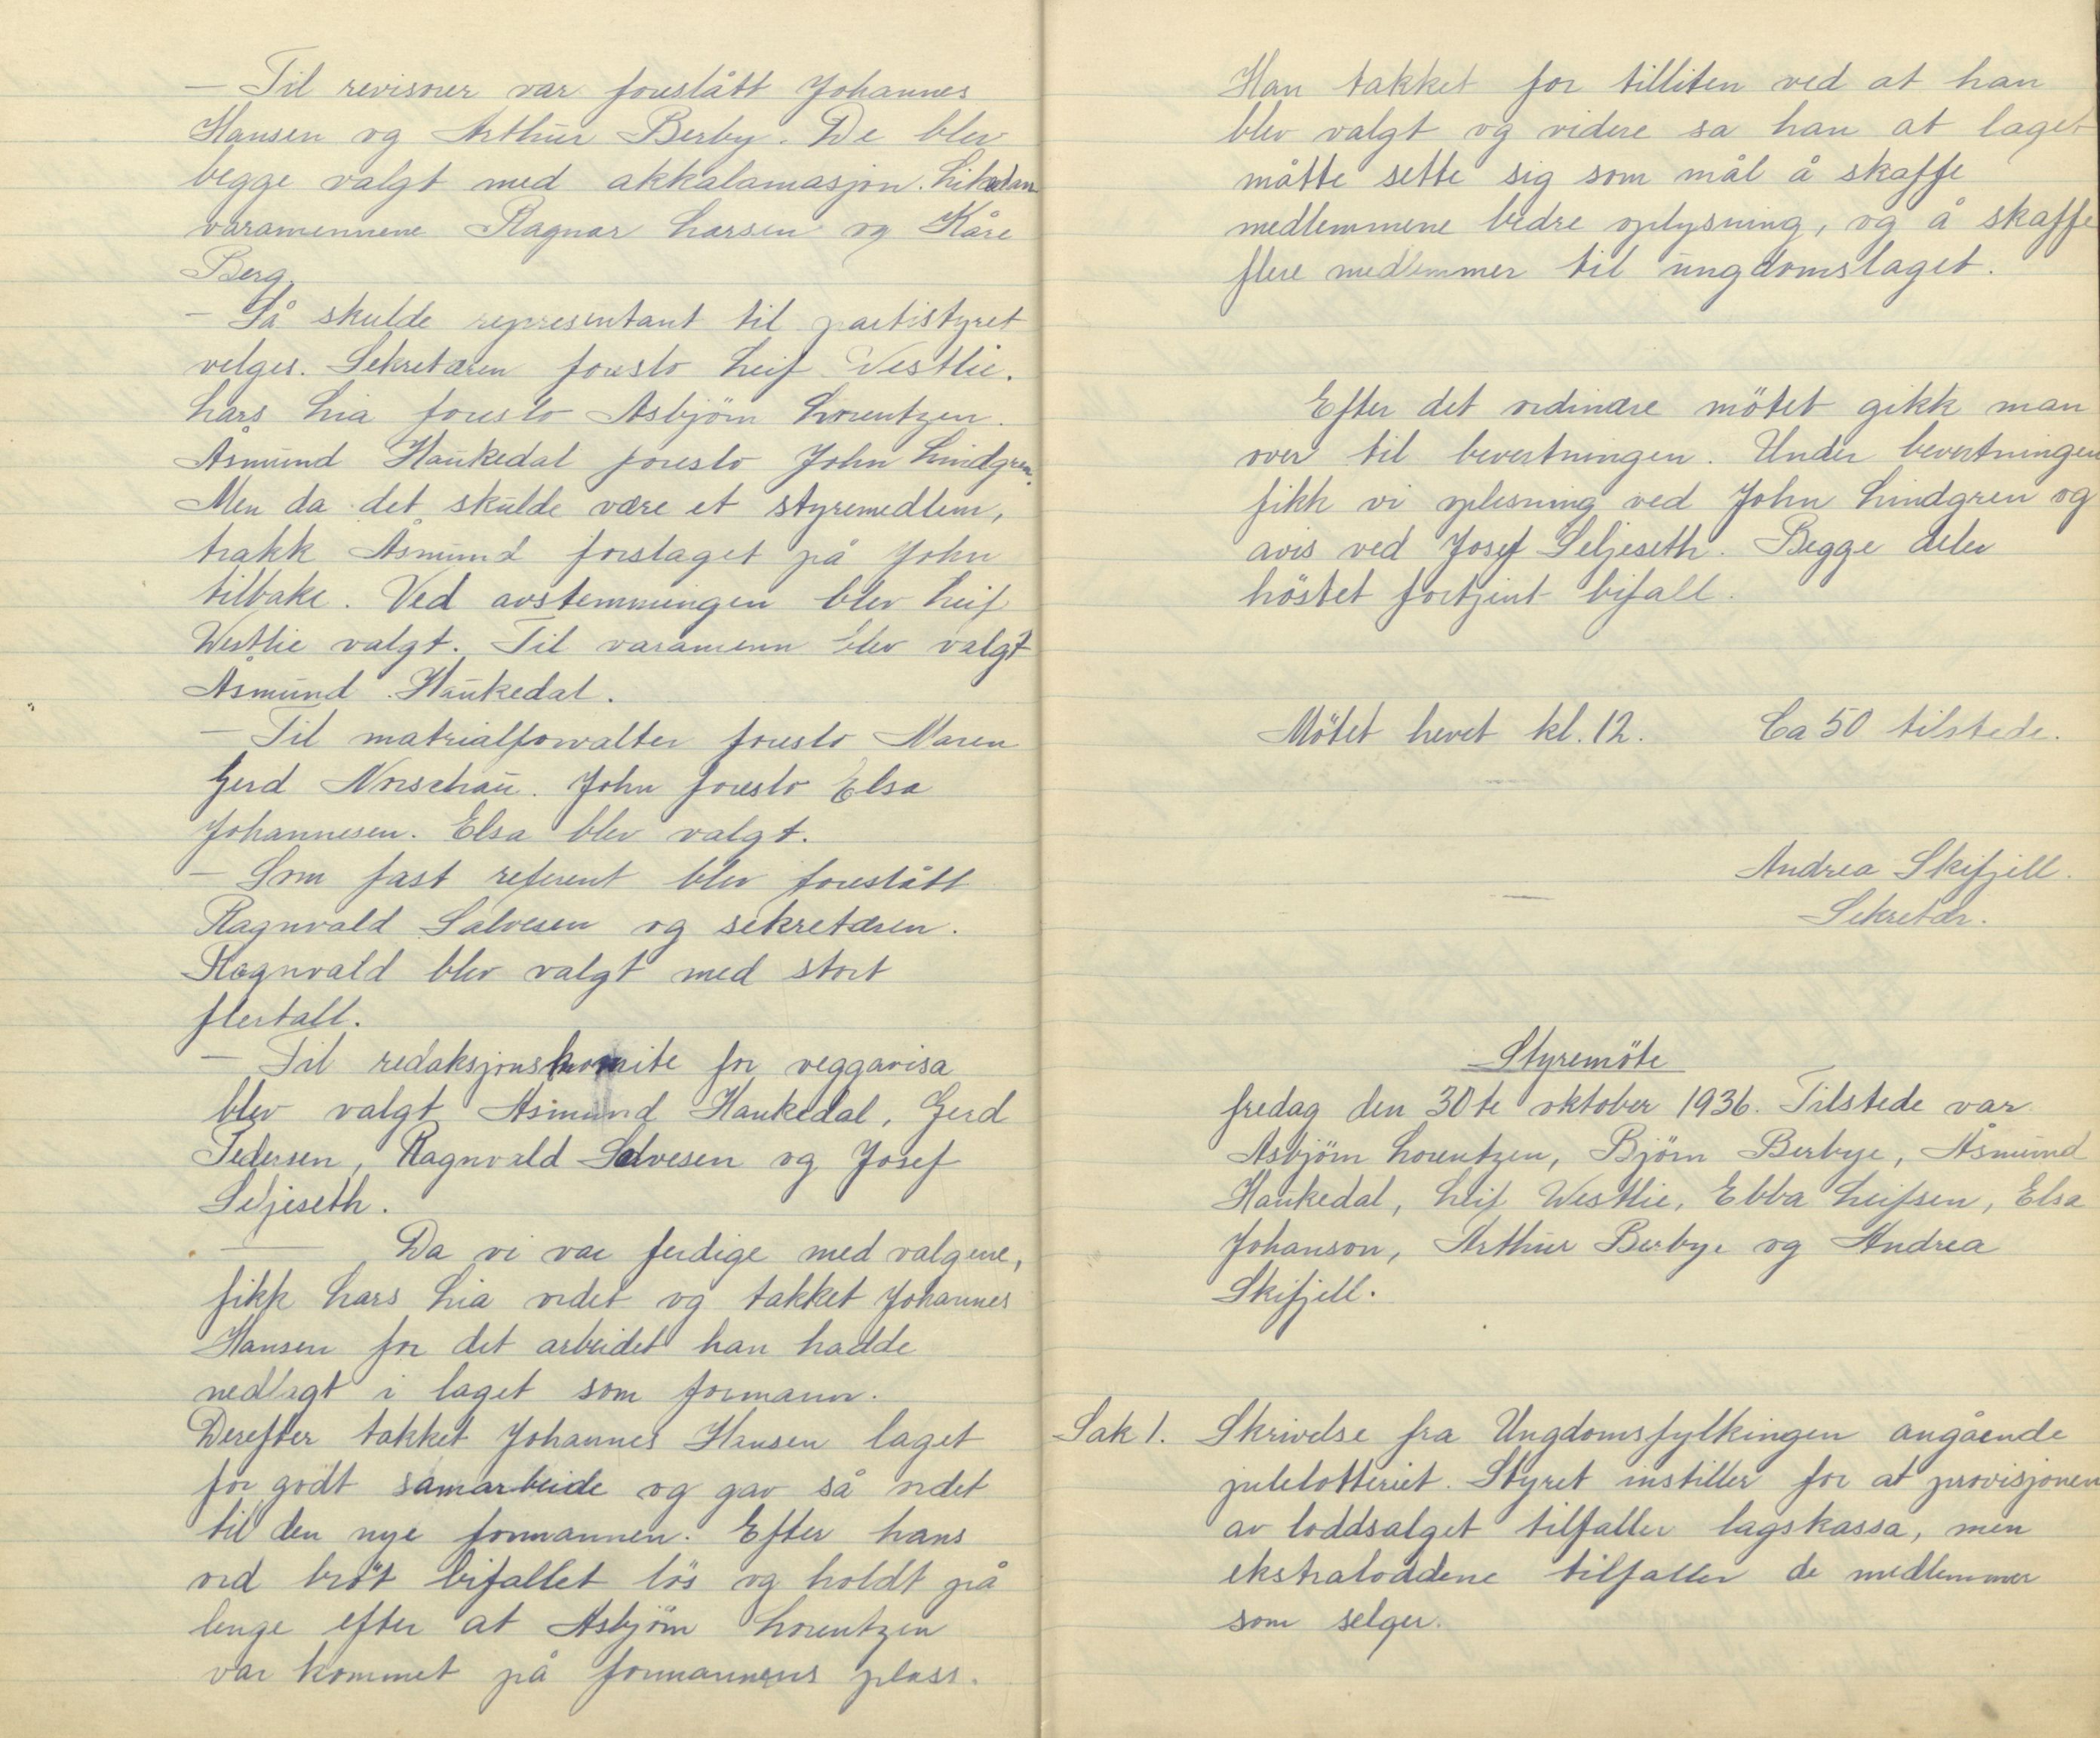 — Til revisorer var foreslått Johannes
Hansen og Arthur Berby. De blev
begge valgt med akkalamasjon. Likedan
varamennene Ragnar Larsen og Kåre
Berg.
— Så skulde representant til partistyret
velges. Sekretæren foreslo Leif Vestlie.
Lars Lia foreslo Asbjörn Lorentzen.
Åsmund Haukedal foreslo John Lindgren.
Men da det skulde være et styremedlem,
trakk Åsmund forslaget på John
tilbake. Ved avstemningen blev Leif
Westlie valgt. Til varamenn blev valgt
Åsmund Haukedal.
— Til matrialforvalter foreslo Maren
Gerd Norschau. John foreslo Elsa
Johannesen. Elsa blev valgt.
— Som fast referent blev foreslått
Ragnvald Salvesen og sekretæren.
Ragnvald blev valgt med stort
flertall.
— Til redaksjonskomite for veggavisa
blev valgt Åsmund Haukedal, Gerd
Pedersen, Ragnvald Salvesen og Josef
Seljeseth.
— Da vi var ferdige med valgene,
fikk Lars Lia ordet og takket Johannes
Hansen for det arbeidet han hadde
nedlagt i laget som formann.
Derefter takket Johannes Hansen laget
for godt samarbeide og gav så ordet
til den nye formannen. Efter hans
ord bröt bifallet lös og holdt på
lenge efter at Asbjörn Lorentzen
var kommet på formannens plass.
Han takket for tilliten ved at han
blev valgt og videre sa han at laget
måtte sette sig som mål å skaffe
medlemmene bedre oplysning, og å skaffe
flere medlemmer til ungdomslaget.
Efter det ordinære mötet gikk man
over til bevertningen. Under bevertningen
fikk vi oplesning ved John Lindgren og
avis ved Josef Seljeseth. Begge deler
höstet fortjent bifall.
Mötet hevet kl. 12. Ca 50 tilstede.
Andrea Skifjell.
Sekretær.
Styremöte
fredag den 30te oktober 1936. Tilstede var
Asbjörn Lorentzen, Björn Berbye, Åsmund
Haukedal, Leif Westlie, Ebba Leifsen, Elsa
Johanson, Arthur Berbye og Andrea
Skifjell.
Sak 1. Skrivelse fra Ungdomsfylkingen angående
julelotteriet. Styret instiller for at provisjonen
av loddsalget tilfaller lagskassa, men
ekstraloddene tilfaller de medlemmer
som selger.